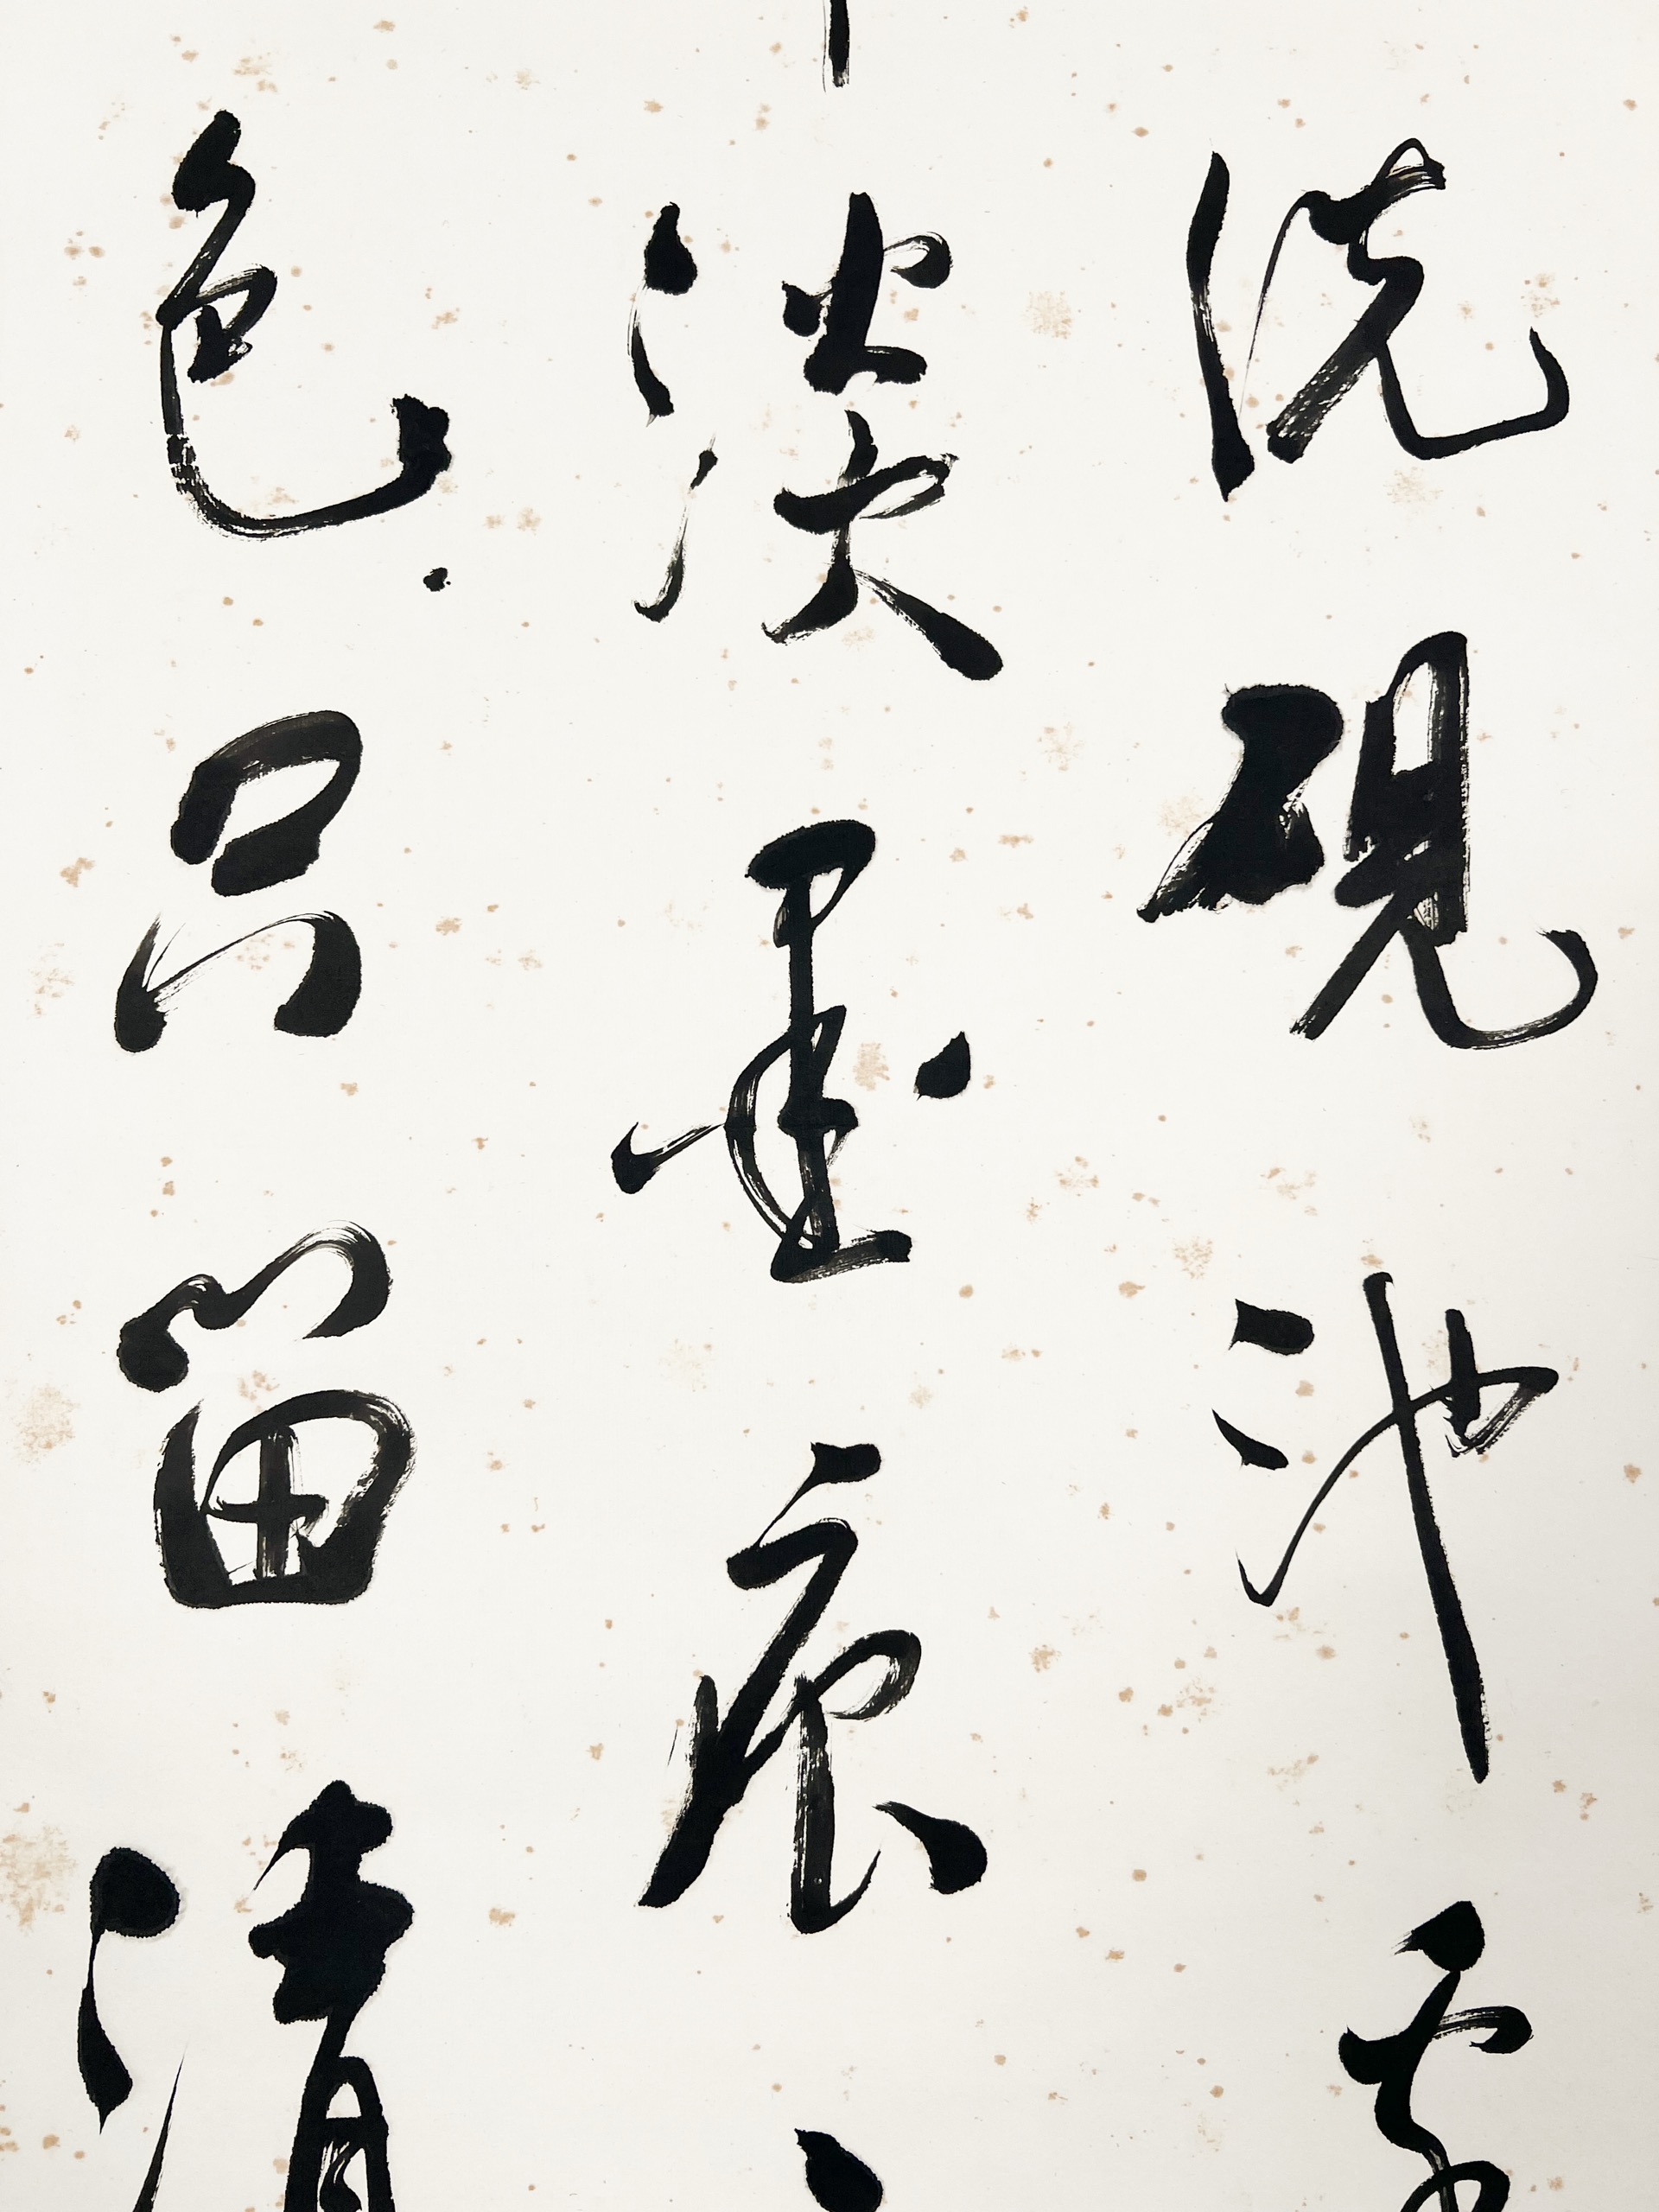 洗硯池
淡墨痕
色只留清